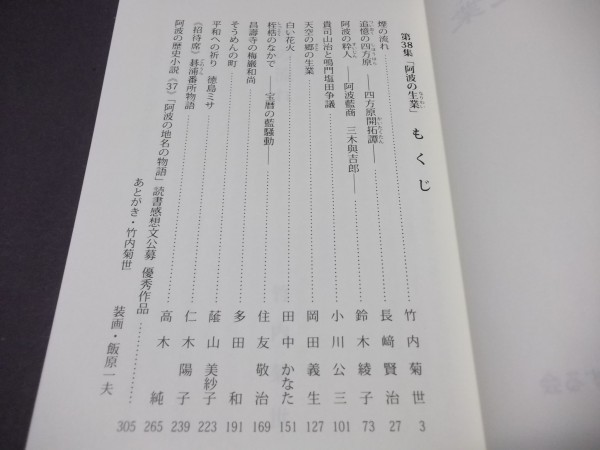 第38集「阿波の生業」 もくじ
煙の流れ 竹内菊世 3
追憶の四方原 ――四方原開拓譚―― 長﨑賢治 27
阿波の粋人 ――阿波藍商 三木與吉郎―― 鈴木綾子 73
貴司山治と鳴門塩田争議 小川公三 101
天空の郷の生業 岡田義生 127
白い花火 田中かなた 151
桎梏のなかで ――宝暦の藍騒動―― 住友敬治 169
昌壽寺の梅巌和尚 多田和 191
そうめんの町 蔭山美紗子 223
平和への祈り 徳島ミサ 仁木陽子 239
《招待席》 鞆浦番所物語 高木純 265
阿波の歴史小説《37》「阿波の地名の物語」読書感想文公募 優秀作品 305
あとがき・竹内菊世
装画・飯原一夫
する会